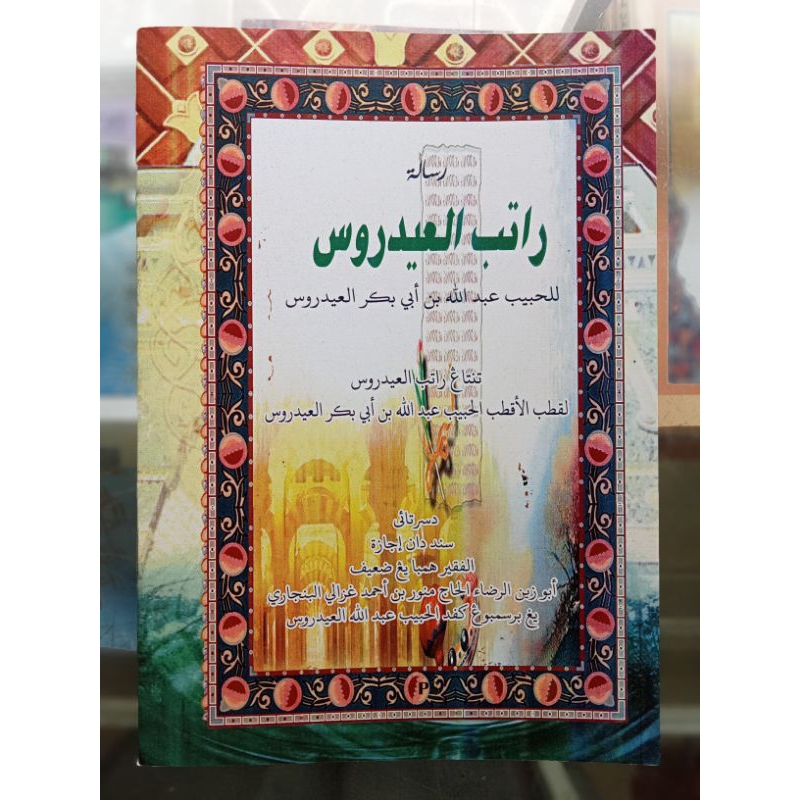 رسالة
راتب العيدروس
للحبيب عبد الله بن أبي بكر العيدروس
تنتاڠ راتب العيدروس
لقطب الأقطب الحبيب عبد الله بن أبي بكر العيدروس
دسرتائى
سند دان إجازة
الفقير همبا يڠ ضعيف
أبو زين الرضاء الحاج منور بن أحمد غزالي البنجاري
يڠ برسمبوڠ كفد الحبيب عبد الله العيدروس
P